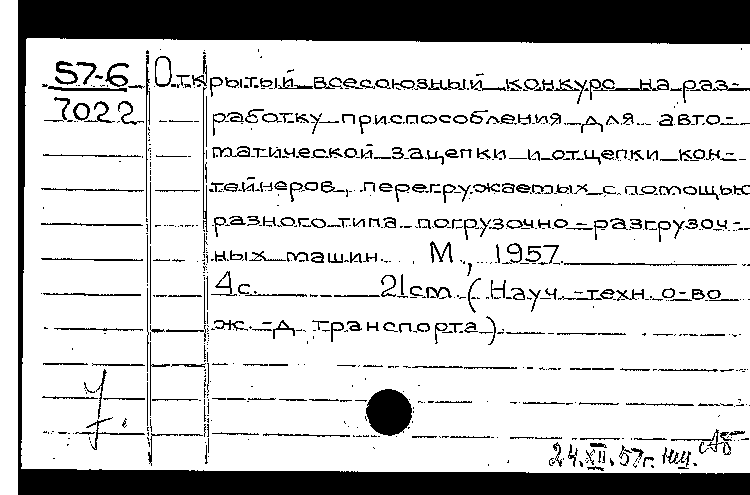 57-6 Открытый всесоюзный конкурс на раз-
7022 работку приспособления для авто-
матической зацепки и отцепки кон-
тейнеров, перегружаемых с помощью
разного типа погрузочно-разгрузоч-
ных машин. М., 1957.
4с. 21cm. (Науч.-техн. о-во
ж.-д. транспорта).
24.XII.57г.